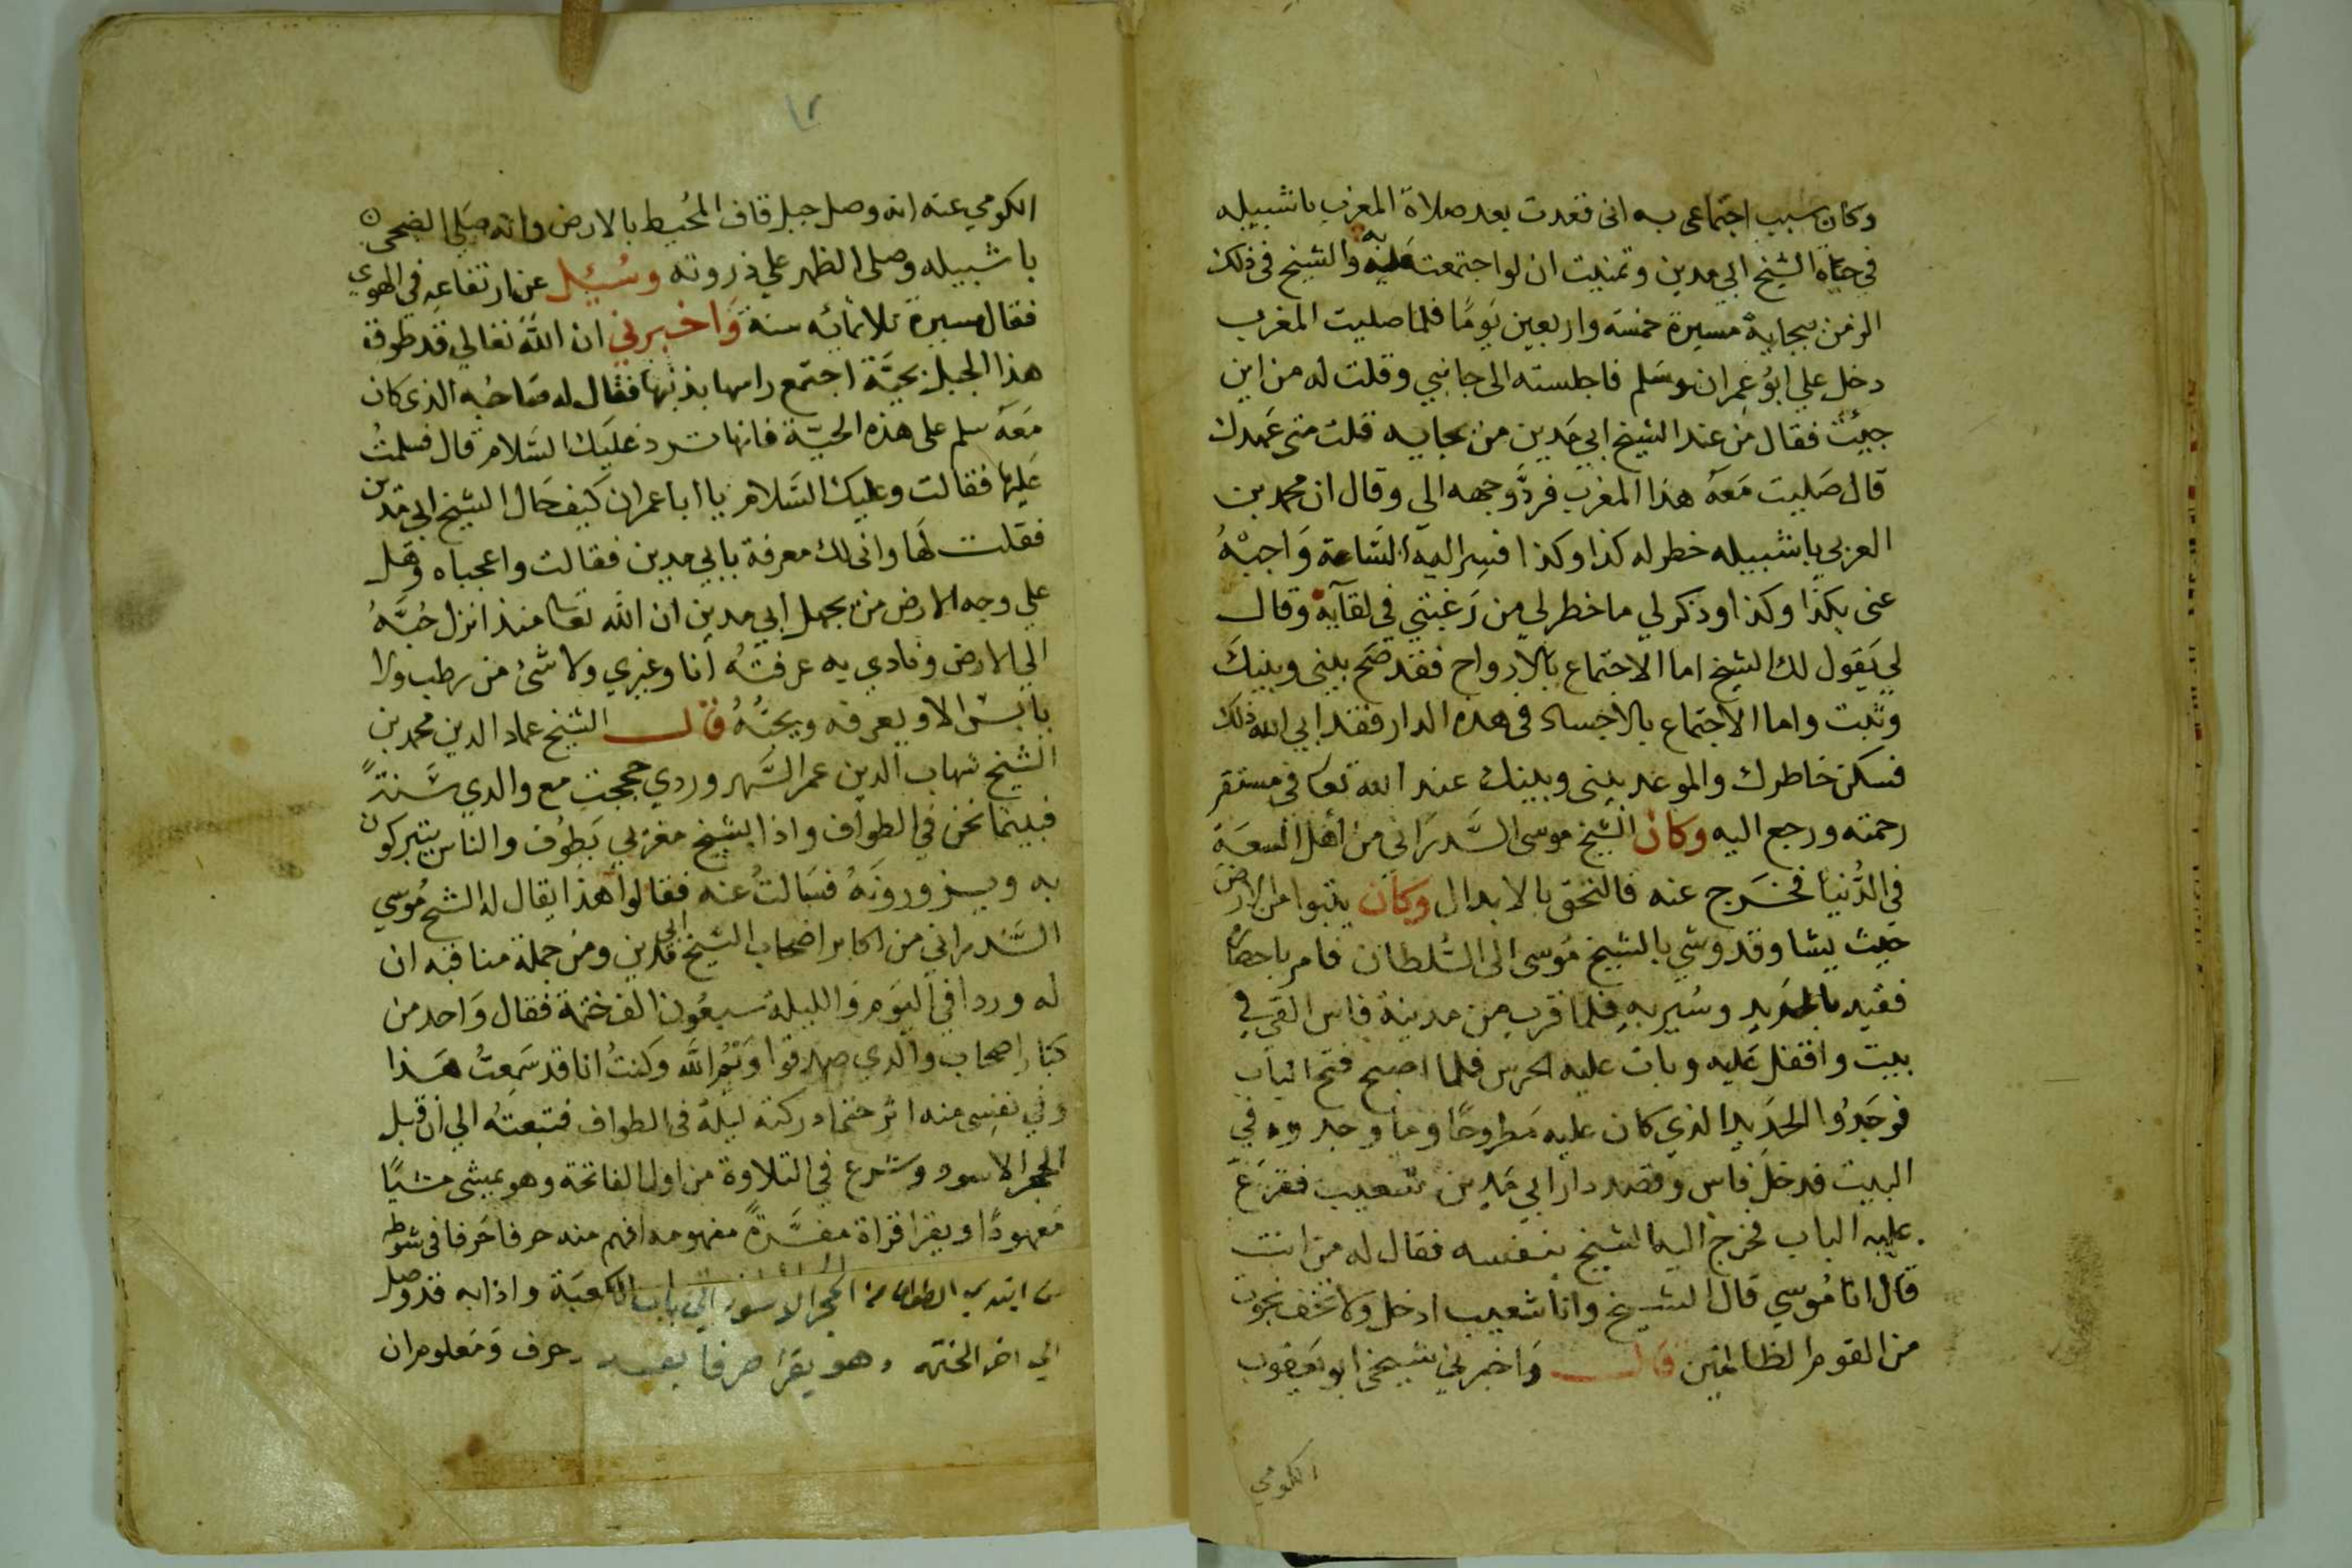 وكان سبب اجتماعى به انى قعدت بعد صلاة المغرب باشبيليه
في حياه الشيخ ابي مدين وتمنيت ان لو اجتمعت به والشيخ فى ذلك
الزمن ببجاية مسيرة خمسه واربعين يومًا فلما صليت المغرب
دخل علي ابو عمران وسلم فاجلسته الى جانبي وقلت له من اين
جيئت فقال من عند الشيخ ابي مدين من بجايه قلت متى عهدك
قال صليت معه هذا المغرب فردّ وجهه الي وقال ان محمد بن
العربي باشبيله خطر له كذا وكذا فسر اليه الساعة واجبه
عنى بكذا وكذا وذكر لي ما خطر لي من رغبتي في لقآيه وقال
لي يقول لك الشيخ اما الاجتماع بالارواح فقد صح بينى وبينك
وثبت واما الاجتماع بالاجساد فى هذه الدار فقد ابي الله ذلك
فسكن خاطرك والموعد بينى وبينك عند الله تعا في مستقر
رحمته ورجع اليه وكان الشيخ موسى السدراني من أهل السعة
في الدنيا فخرج عنه فالتحق بالابدال وكان يتبوا من الارض
حيث يشا وقد وشي بالشيخ موسى الى السلطان فامر باحضاره
فقيد بالحديد وسير به فلما قرب من مدينة فاس القي في
بيت واقفل عليه وبات عليه الحرس فلما اصبح فتح الباب
فوجدوا الحديد الذي كان عليه مطروحًا وما وجدوه في
البيت فدخل فاس وقصد دار ابي مدين شعيب فقرع
عليه الباب فخرج اليه الشيخ بنفسه فقال له من انت
قال انا موسي قال الشيخ وانا شعيب ادخل ولا تخف نجوت
من القوم الظالمين قال واخبرني شيخي ابو يعقوب
الكومي
١٢
الكومي عنه انه وصل جبل قاف المحيط بالارض وانه صلي الضحى
باشبيله وصلى الظهر علي ذروته وسُئِل عن ارتفاعه في الهوي
فقال مسيرة ثلاثمائه سنة واخبرني ان الله تعالي قد طوق
هذا الجبل بحيّة اجتمع راسها بذنبها فقال له صاحبه الذى كان
معه سلم على هذه الحيّة فانها ترد عليك السلام قال فسلمت
عليها فقالت وعليك السلام يا ابا عمران كيف حال الشيخ ابي مدين
فقلت لها وانى لك معرفة بابي مدين فقالت واعجباه وهل
علي وجه الارض من يجهل ابي مدين ان الله تعا منذ انزل حُبَّهُ
الي الارض ونادي به عرفته أنا وغيري ولا شئ من رطب ولا
يابس الا ويعرفه ويحبّه قال الشيخ عماد الدين محمد بن
الشيخ شهاب الدين عمر السهروردي حججت مع والدي سنةً
فبينما نحن في الطواف واذا بشيخ مغربي يطوف والناس يتبركون
به ويزورونه فسالت عنه فقالوا هذا يقال له الشيخ موسي
السدراني من اكابر اصحاب الشيخ ابي مدين ومن جملة مناقبه ان
له وردا في اليوم والليلة سبعون الف ختمة فقال واحد من
كبار اصحاب والدي صدقوا وكنتُ انا قد سمعتُ هذا
وفي نفسى منه اثر حتى ادركته ليلة فى الطواف فتبعته الي ان قبل
الحجر الاسود وشرع في التلاوة من اول الفاتحة وهو يمشى مشيًا
معهودًا ويقرا قراة مفسَّرةً مفهومه افهم منه حرفا حرفا فى شوطه
من ابتدي الطواف من الحجر الاسود الي باب الكعبة واذا به قد وصل
الي اخر الختمه وهو يقرا حرفا بعد حرف ومعلوم ان